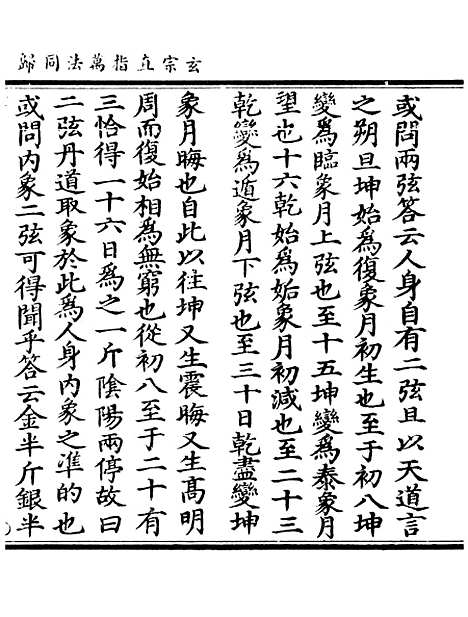 玄宗直指萬法同歸
或問兩弦答云人身自有二弦且以天道言
之朔旦坤始爲復象月初生也至于初八坤
變爲臨象月上弦也至十五坤變爲泰象月
望也十六乾始爲姤象月初減也至二十三
乾變爲遁象月下弦也至三十日乾盡變坤
象月晦也自此以往坤又生震晦又生高明
周而復始相爲無窮也從初八至于二十有
三恰得一十六日爲之一斤陰陽兩停故曰
二弦丹道取象於此爲人身内象之準的也
或問内象二弦可得聞乎答云金半斤銀半